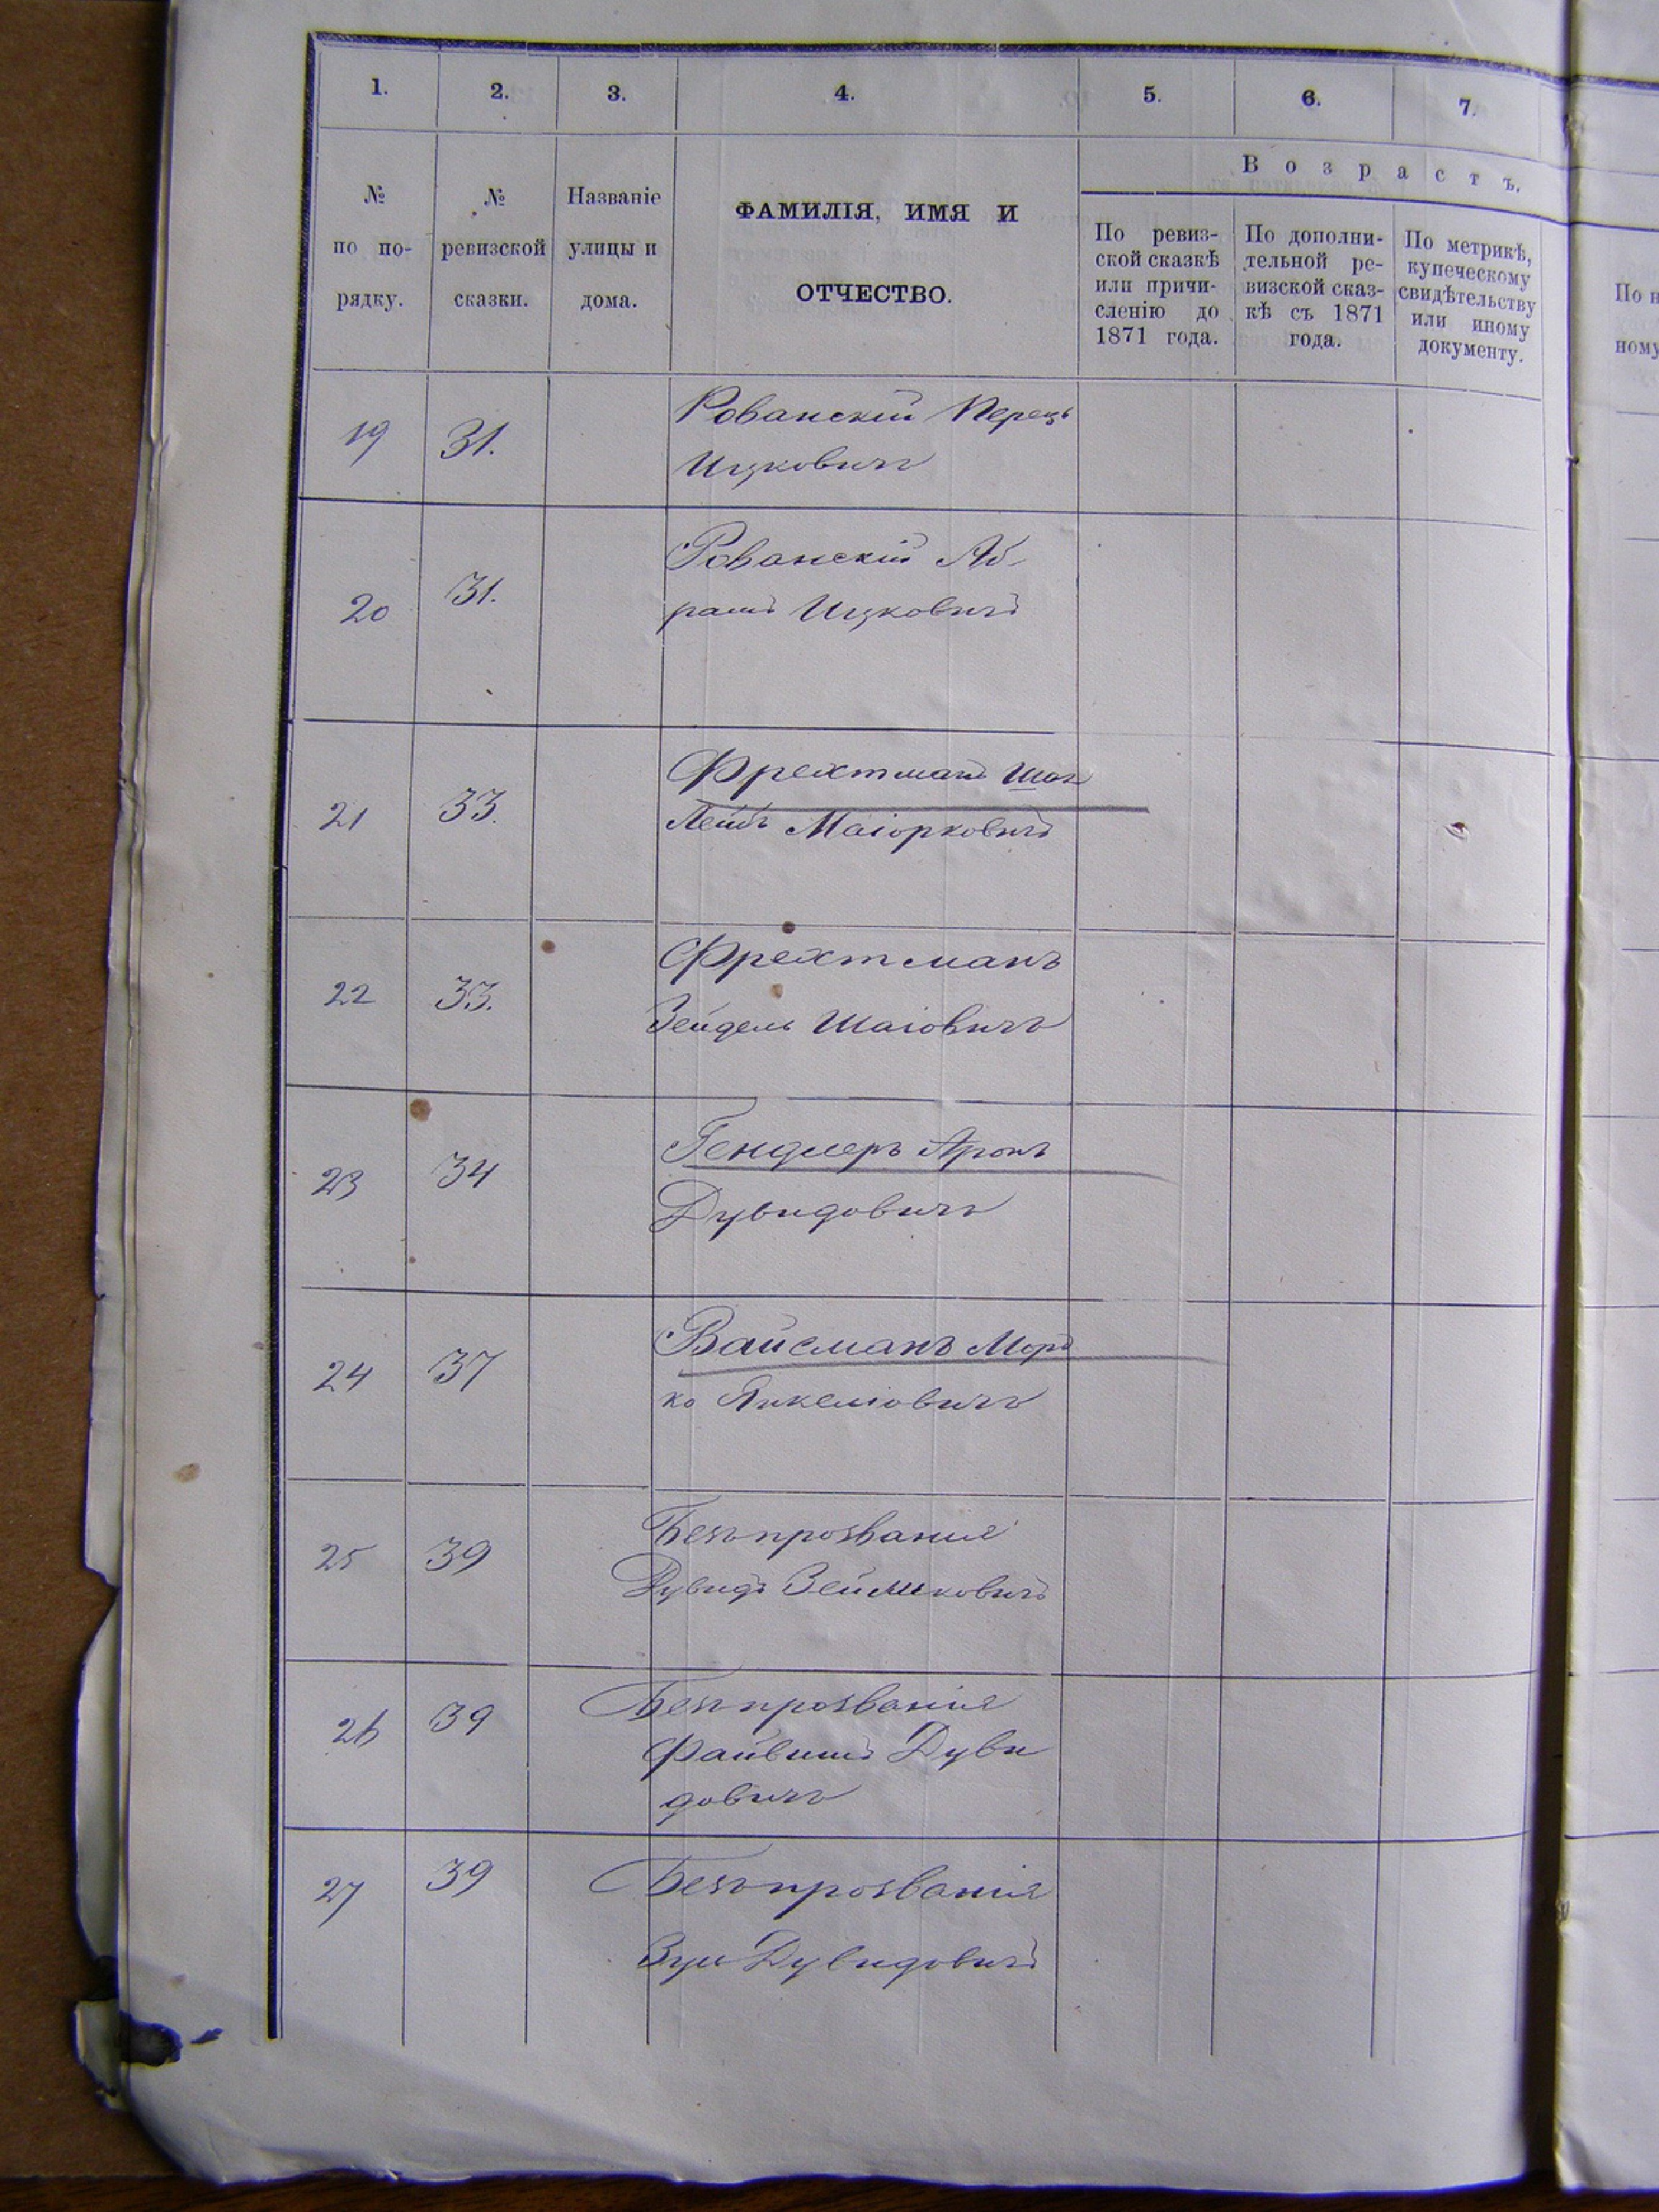 1. 2. 3. 4. 5. 6. 7.
Возрастъ.
№ по по-рядку.
№ ревизской сказки.
Названіе улицы и дома.
ФАМИЛІЯ, ИМЯ И
ОТЧЕСТВО.
По ревиз-
ской сказкѣ
или причи-
сленію до
1871 года.
По дополни-
тельной ре-
визской сказ-
кѣ съ 1871
года.
По метрикѣ,
купеческому
свидѣтельству
или иному
документу.
19 31. Рованскій Перецъ
Ицковичъ
20 31. Рованскій Аб-
рамъ Ицковичъ
21 33. Фрехтманъ Шая
Лейбъ Маіорковичъ
22 33. Фрехтманъ
Зейдель Шаіовичъ
23 34 Гендлеръ Аронъ
Дувидовичъ
24 37 Вайсманъ Морд
ко Янкеліовичъ
25 39 Безъпрозванія
Дувидъ Зейликовичъ
26 39 Безъпрозванія
Файвишъ Дуви
довичъ
27 39 Безъпрозванія
Дувидовичъ